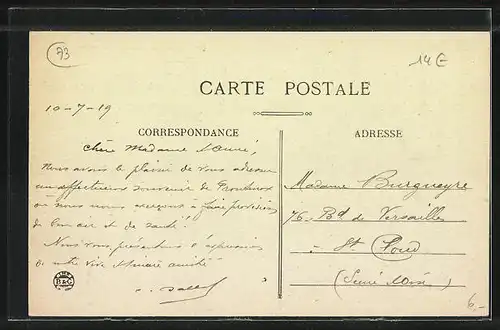 73
14€
CARTE POSTALE
10-7-19
CORRESPONDANCE
ADRESSE
Chère Madame
Nous avons le plaisir de vous adresser
un affectueux souvenir de
où nous nous faire provision
de bon air et de santé!
Nous vous présentons l'expression
de notre vive amitié
Madame Burgueyre
76 - Bd de Versailles
à St Cloud
(Seine Oise)
B&G
6,-